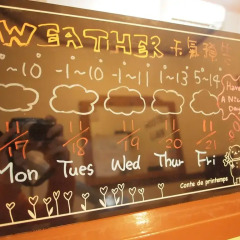 WEATHER 天氣預
~10 -1~10 -1~11 1~13 5~14
Have A Nice Day
11/17 11/18 11/19 11/20 11/21
Mon Tues Wed Thur Fri
Conte de printemps